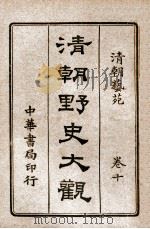 清朝藝苑 卷十
清朝野史大觀
中華書局印行